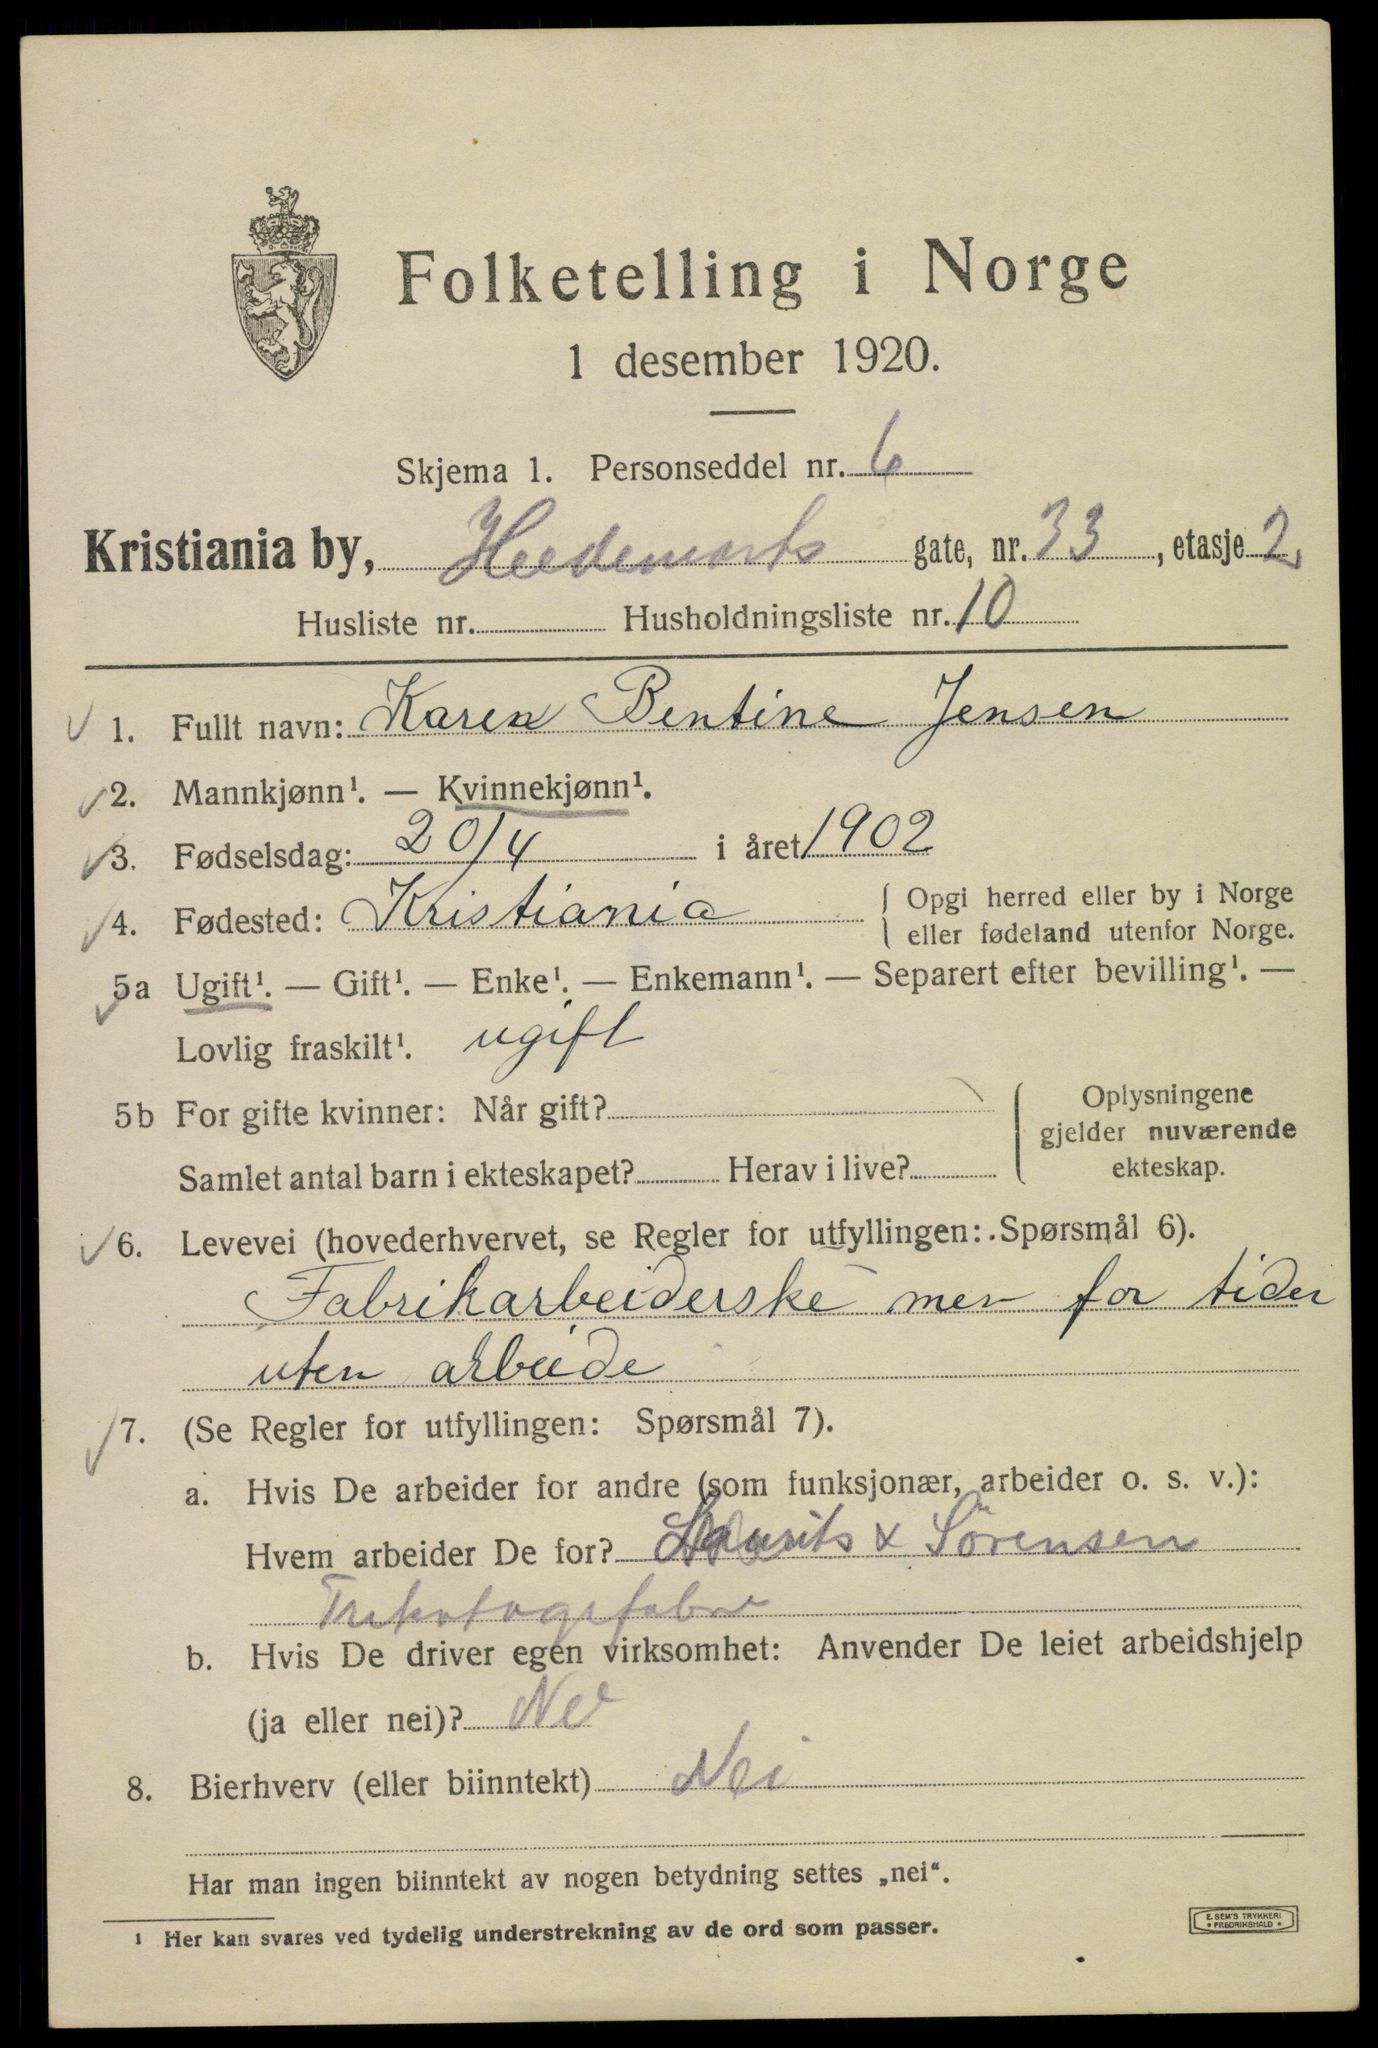 Folketelling i Norge
1 desember 1920.
Skjema 1. Personseddel nr. 6
Kristiania by, Hedemarks gate, nr. 33, etasje 2
Husliste nr. Husholdningsliste nr. 10
1. Fullt navn: Karen Bentine Jensen
2. Mannkjønn¹. — Kvinnekjønn¹.
3. Fødselsdag: 20/4 i året 1902
4. Fødested: Kristiania { Opgi herred eller by i Norge
eller fødeland utenfor Norge.
5a Ugift¹. — Gift¹. — Enke¹. — Enkemann¹. — Separert efter bevilling¹. —
Lovlig fraskilt¹. ugift
5b For gifte kvinner: Når gift?
Samlet antal barn i ekteskapet? Herav i live?
Oplysningene
gjelder nuværende
ekteskap.
6. Levevei (hovederhvervet, se Regler for utfyllingen: Spørsmål 6).
Fabrikarbeiderske men for tiden
uten arbeide
7. (Se Regler for utfyllingen: Spørsmål 7).
a. Hvis De arbeider for andre (som funksjonær, arbeider o. s. v.):
Hvem arbeider De for? & Sörensen
Trikotagefabr
b. Hvis De driver egen virksomhet: Anvender De leiet arbeidshjelp
(ja eller nei)? Nei
8. Bierhverv (eller biinntekt) Nei
Har man ingen biinntekt av nogen betydning settes „nei“.
¹ Her kan svares ved tydelig understrekning av de ord som passer.
E. SEM'S TRYKKERI
* FREDRIKSHALD *